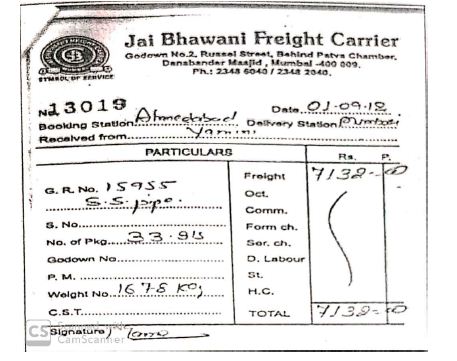 Jai Bhawani Freight Carrier
Godown No.2, Russel Street, Behind Patva Chamber,
Danabander Masjid, Mumbai -400 009.
Ph.: 2348 6040 / 2348 2040.
SYMBOL OF SERVICE
No. 13019
Date 01-09-18
Booking Station Ahmedabad Delivery Station Mumbai
Received from Yamini
PARTICULARS Rs. P.
G. R. No. 15955 Freight 7132=00
S.S. pipe. Oct.
S. No. Comm.
No. of Pkg. Form ch.
Godown No Ser. ch.
P. M. D. Labour
Weight No. 1678 Kg St.
H.C.
C.S.T. TOTAL 7132=00
Signature
CS CamScanner